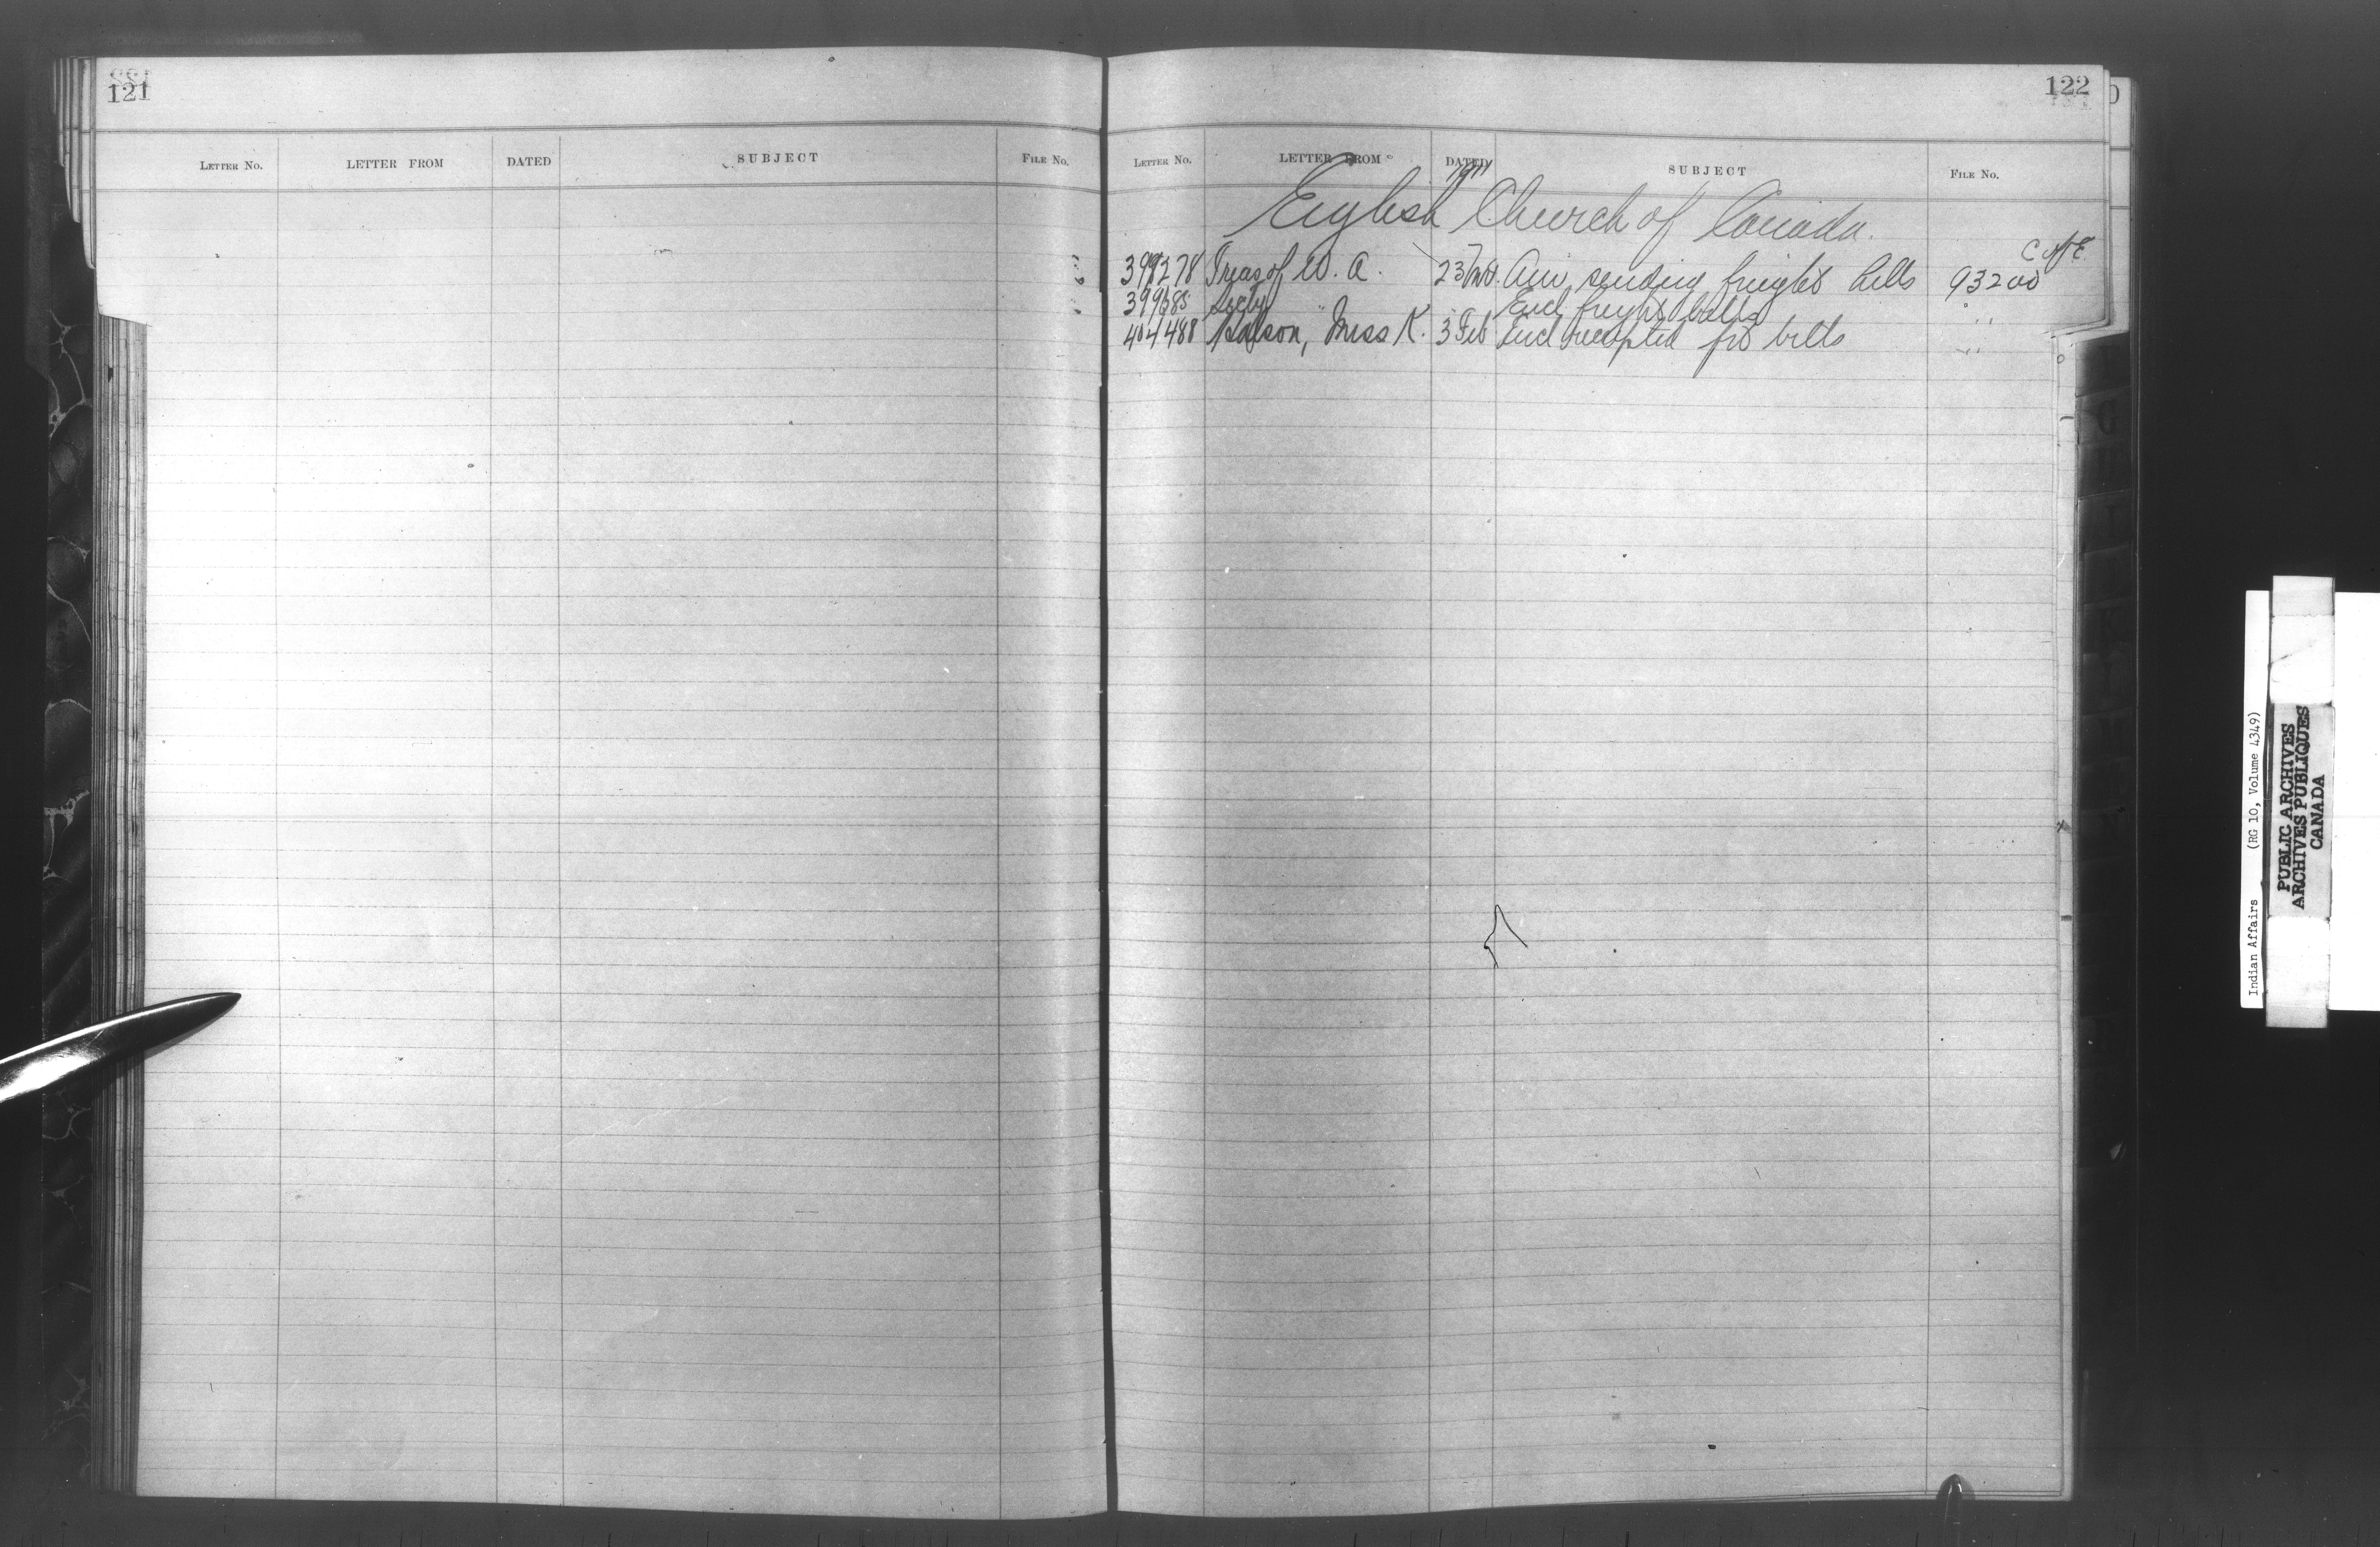 121
LETTER NO. LETTER FROM DATED SUBJECT FILE NO.
122
LETTER NO. LETTER FROM DATED SUBJECT FILE NO.
1911
English Church of Canada.
C of E
399278 Treas of W. A. 23 Am sending freight bills 93200
Secty Encl freight bills "
404488 Miss K. 3 Feb Encl receipted frt bills "
Indian Affairs (RG 10, Volume 4349)
PUBLIC ARCHIVES
ARCHIVES PUBLIQUES
CANADA